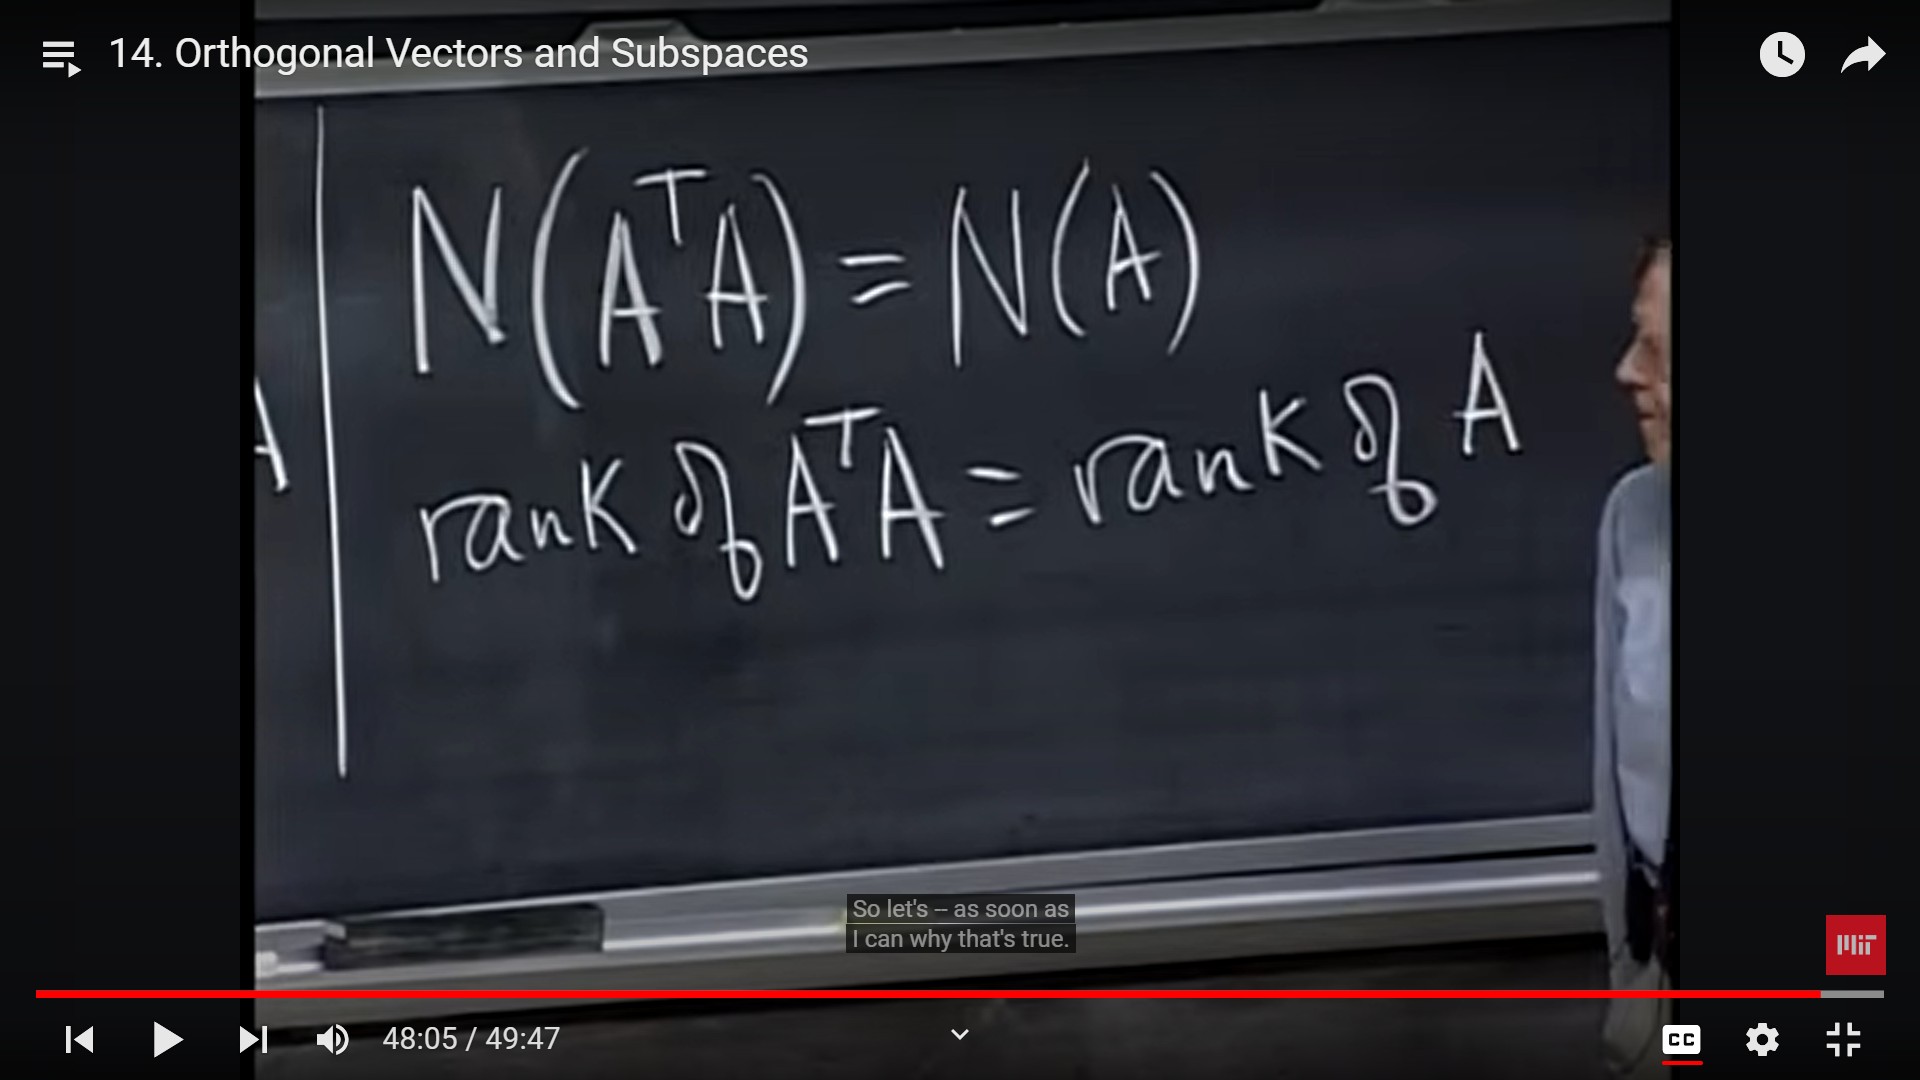 14. Orthogonal Vectors and Subspaces
N(AᵀA) = N(A)
A
rank of AᵀA = rank of A
So let's -- as soon as
I can why that's true.
MiT
48:05 / 49:47
CC